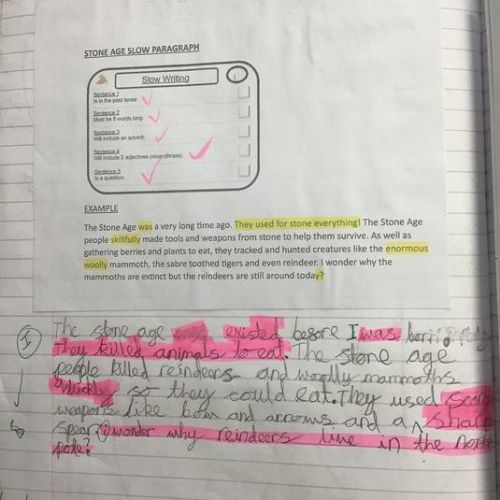 STONE AGE SLOW PARAGRAPH
Slow Writing
Sentence 1
Is in the past tense
Sentence 2
Must be 5 words long
Sentence 3
Will include an adverb.
Sentence 4
Will include 2 adjectives (noun phrase)
Sentence 5
Is a question.
EXAMPLE
The Stone Age was a very long time ago. They used for stone everything! The Stone Age
people skillfully made tools and weapons from stone to help them survive. As well as
gathering berries and plants to eat, they tracked and hunted creatures like the enormous
woolly mammoth, the sabre toothed tigers and even reindeer. I wonder why the
mammoths are extinct but the reindeers are still around today?
I The stone age existed before I was born.
They killed animals to eat. The stone age
people killed reindeers and woolly mammoths
so they could eat. They used
weapons like bow and arrows and a sharp
spear. I wonder why reindeers live in the north
pole?